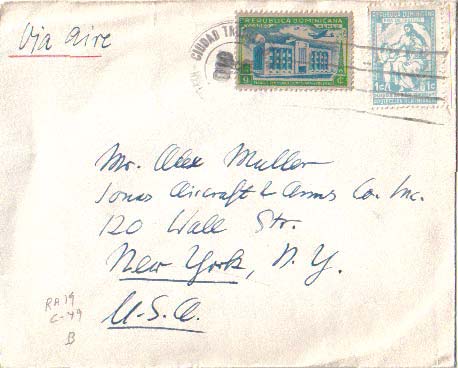 Via aire
CIUDAD TR
REPUBLICA DOMINICANA
9 ¢
REPUBLICA DOMINICANA
1c 01c
Mr. Alex Muller
Jonas Aircraft & Arms Co. Inc.
120 Wall Str.
New York, N. Y.
U.S.A.
RA19
C-49
B